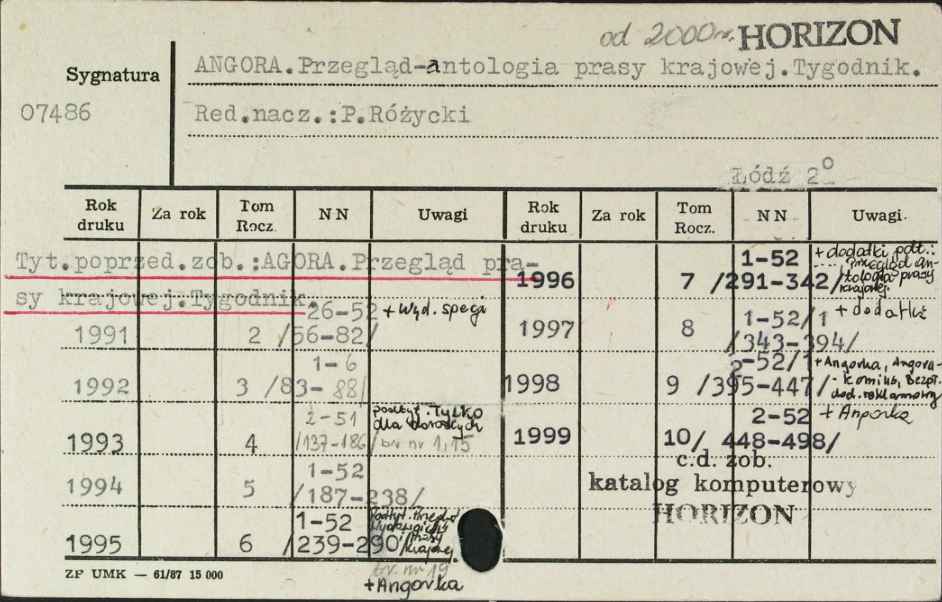 od 2000 r. HORIZON
Sygnatura
07486
ANGORA.Przegląd-antologia prasy krajowej.Tygodnik.
Red.nacz.:P.Różycki
Łódź 2°
Rok druku Za rok Tom Rocz. NN Uwagi Rok druku Za rok Tom Rocz. NN Uwagi
Tyt.poprzed.zob.:AGORA.Przegląd pra-
sy krajowej.Tygodnik.
1991 2 26-52 /56-82/ + wyd. specj
1992 3 1-6 /83-88/
1993 4 2-51 /137-186/ podtyt. Tylko dla dorosłych br nr 1,15
1994 5 1-52 /187-238/
1995 6 1-52 /239-290/ krajowej
br. nr 19
+Angorka
1996 7 1-52 /291-342/ + dodatki, pdt.: Przegląd an-
tologia prasy
krajowej
1997 8 1-52/1 /343-394/ + dodatki
1998 9 2-52/1 /395-447/ +Angorka, Angora-
-komiks, Bezpł.
dod. reklamowy
1999 10 2-52 /448-498/ + Angorka
c.d. zob.
katalog komputerowy
HORIZON
ZP UMK — 61/87 15 000